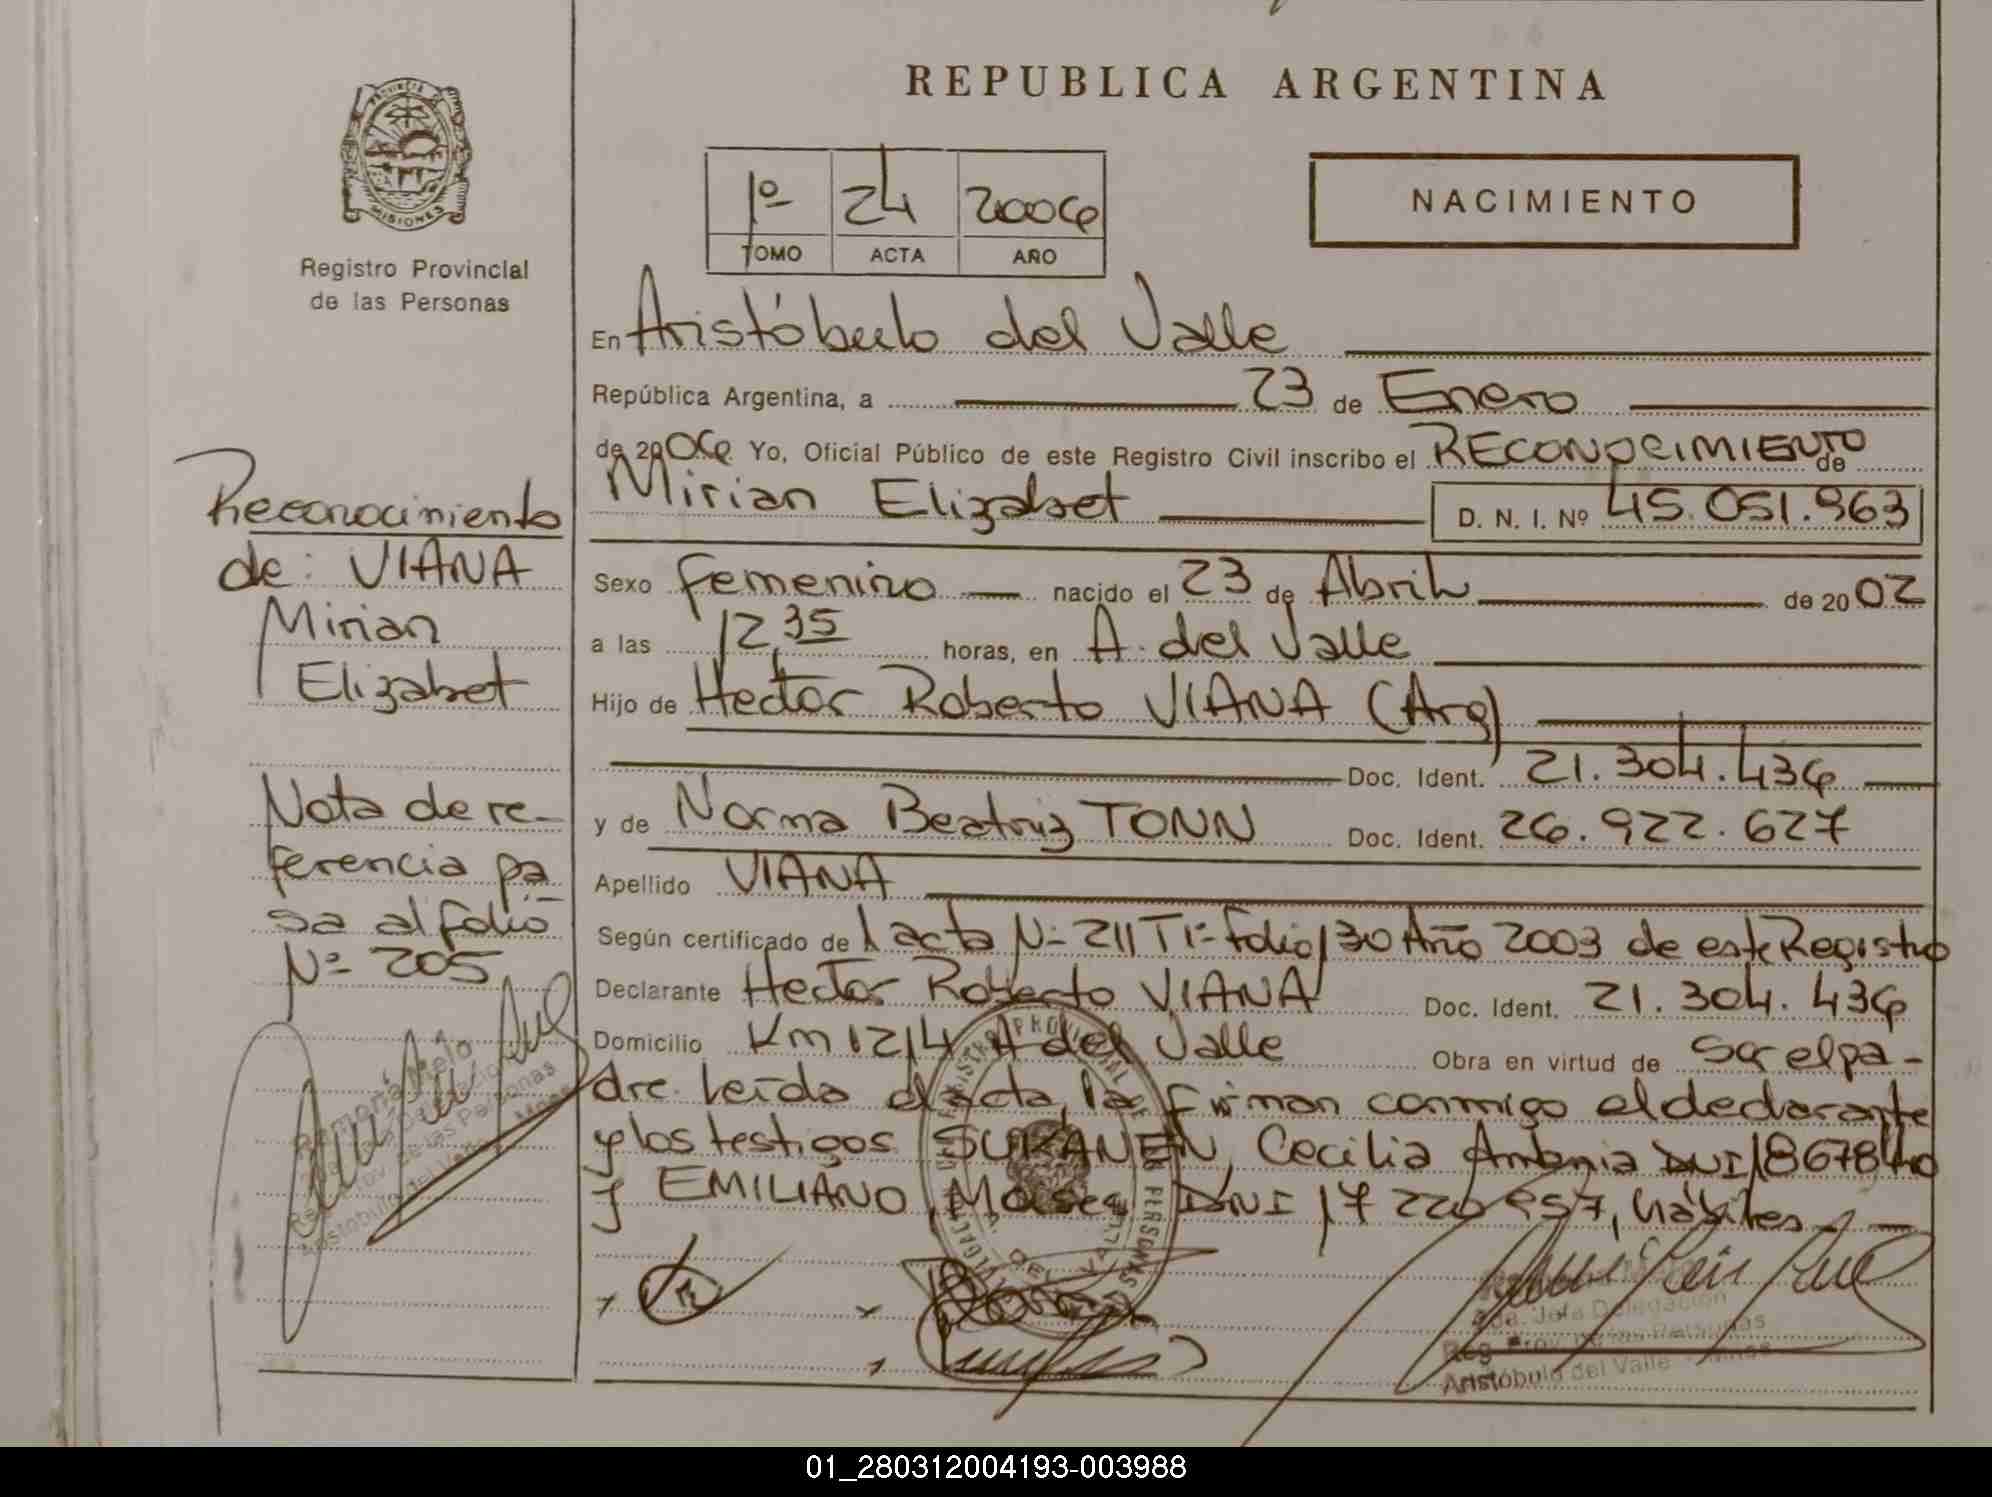 REPUBLICA ARGENTINA
PROVINCIA DE
MISIONES
Registro Provincial
de las Personas
1º 24 2006
TOMO ACTA AÑO
NACIMIENTO
En Aristóbulo del Valle
República Argentina, a 23 de Enero
de 2006 Yo, Oficial Público de este Registro Civil inscribo el RECONOCIMIENTO de
Mirian Elizabet D. N. I. Nº 45.051.963
Sexo femenino nacido el 23 de Abril de 2002
a las 12,35 horas, en A. del Valle
Hijo de Hector Roberto VIANA (Arg)
Doc. Ident. 21.304.436
y de Norma Beatriz TONN Doc. Ident. 26.922.627
Apellido VIANA
Según certificado de acta Nº 211 Tº 1º folio 130 Año 2003 de este Registro
Declarante Hector Roberto VIANA Doc. Ident. 21.304.436
Domicilio Km 1214 A del Valle Obra en virtud de ser el pa-
dre. Leída el acta, la firman conmigo el declarante
y los testigos SUKANEN, Cecilia Antonia DNI 18678410
y EMILIANO, Moises DNI 17 220 957, hábiles
Reconocimiento
de: VIANA
Mirian
Elizabet
Nota de re-
ferencia pa
sa al folio
Nº 205
Reg. Prov. de las Personas
Aristóbulo del Valle
Jefa Delegación
Reg. Prov. de las Personas
Aristóbulo del Valle - Mnes
01_280312004193-003988